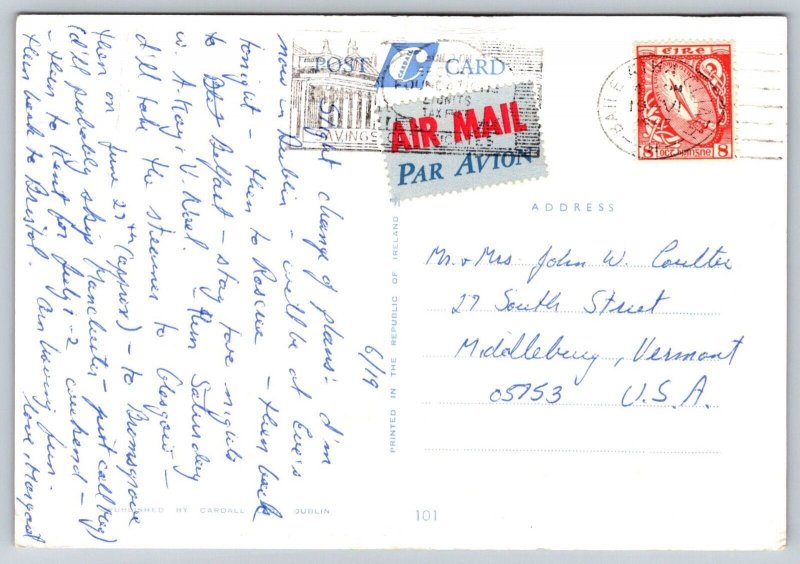 POST CARD
AIR MAIL
PAR AVION
SAVINGS
EIRE
8 OCT bPINSNE 8
6/19
Slight change of plans: I'm
now in Dublin – will be at Eve's
tonight – then to Roscrea – then back
to Belfast – stay two nights
w. A. Kay, V. Noel. – then Saturday
I'll take the steamer to Glasgow –
then on June 27th (approx) – to Bromsgrove
(I'll probably skip Manchester – just call Kay)
– then to Kent for July 1-2 weekend –
then back to Bristol. Am having fun.
love, Margaret
ADDRESS
Mr. & Mrs. John W. Coulter
27 South Street
Middlebury, Vermont
05753 U.S.A.
PRINTED IN THE REPUBLIC OF IRELAND
PUBLISHED BY CARDALL DUBLIN
101